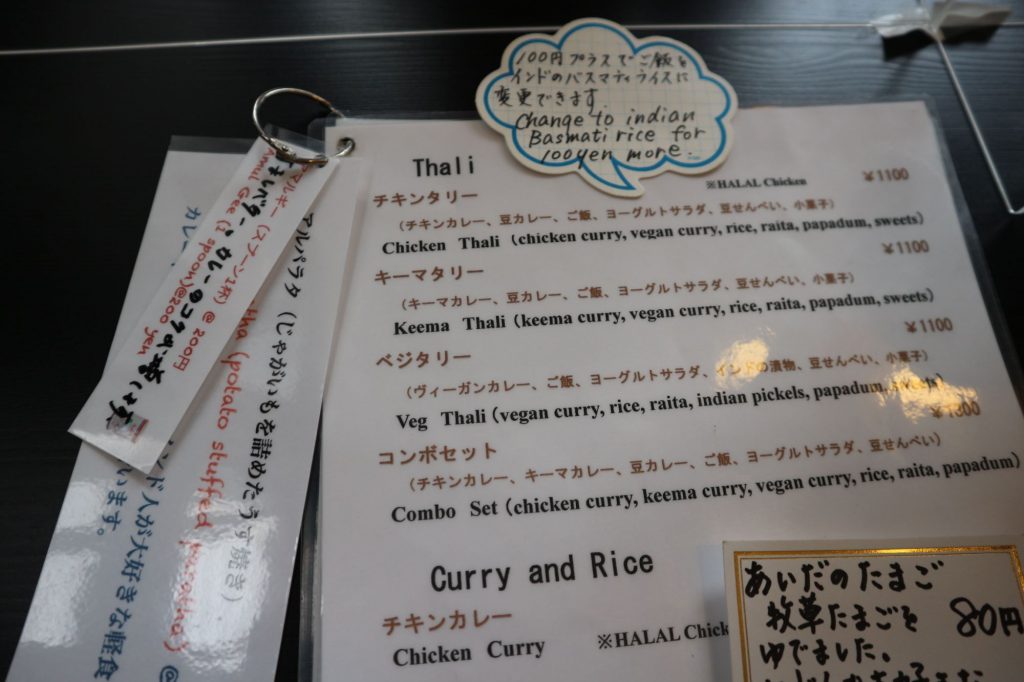 100円プラスでご飯を
インドのバスマティライスに
変更できます.
Change to indian
Basmati rice for
100yen more.
Thali
※HALAL Chicken
¥1100
チキンタリー
（チキンカレー、豆カレー、ご飯、ヨーグルトサラダ、豆せんべい、小菓子）
Chicken Thali (chicken curry, vegan curry, rice, raita, papadum, sweets)
¥1100
キーマタリー
（キーマカレー、豆カレー、ご飯、ヨーグルトサラダ、豆せんべい、小菓子）
Keema Thali (keema curry, vegan curry, rice, raita, papadum, sweets)
¥1100
ベジタリー
（ヴィーガンカレー、ご飯、ヨーグルトサラダ、インドの漬物、豆せんべい、小菓子）
Veg Thali (vegan curry, rice, raita, indian pickels, papadum, sweets)
コンボセット
（チキンカレー、キーマカレー、豆カレー、ご飯、ヨーグルトサラダ、豆せんべい）
Combo Set (chicken curry, keema curry, vegan curry, rice, raita, papadum)
Curry and Rice
チキンカレー
Chicken Curry
※HALAL Chick
あいだのたまご
牧草たまごを
80円
ゆでました。
マルギー (スプーン1杯) @ 200円
Amul Gee (1 spoon)@200 yen
アルパラタ (じゃがいもを詰めたうす焼き)
tha (potato stuffed paratha) @
ンド人が大好きな軽食
います。
カレ